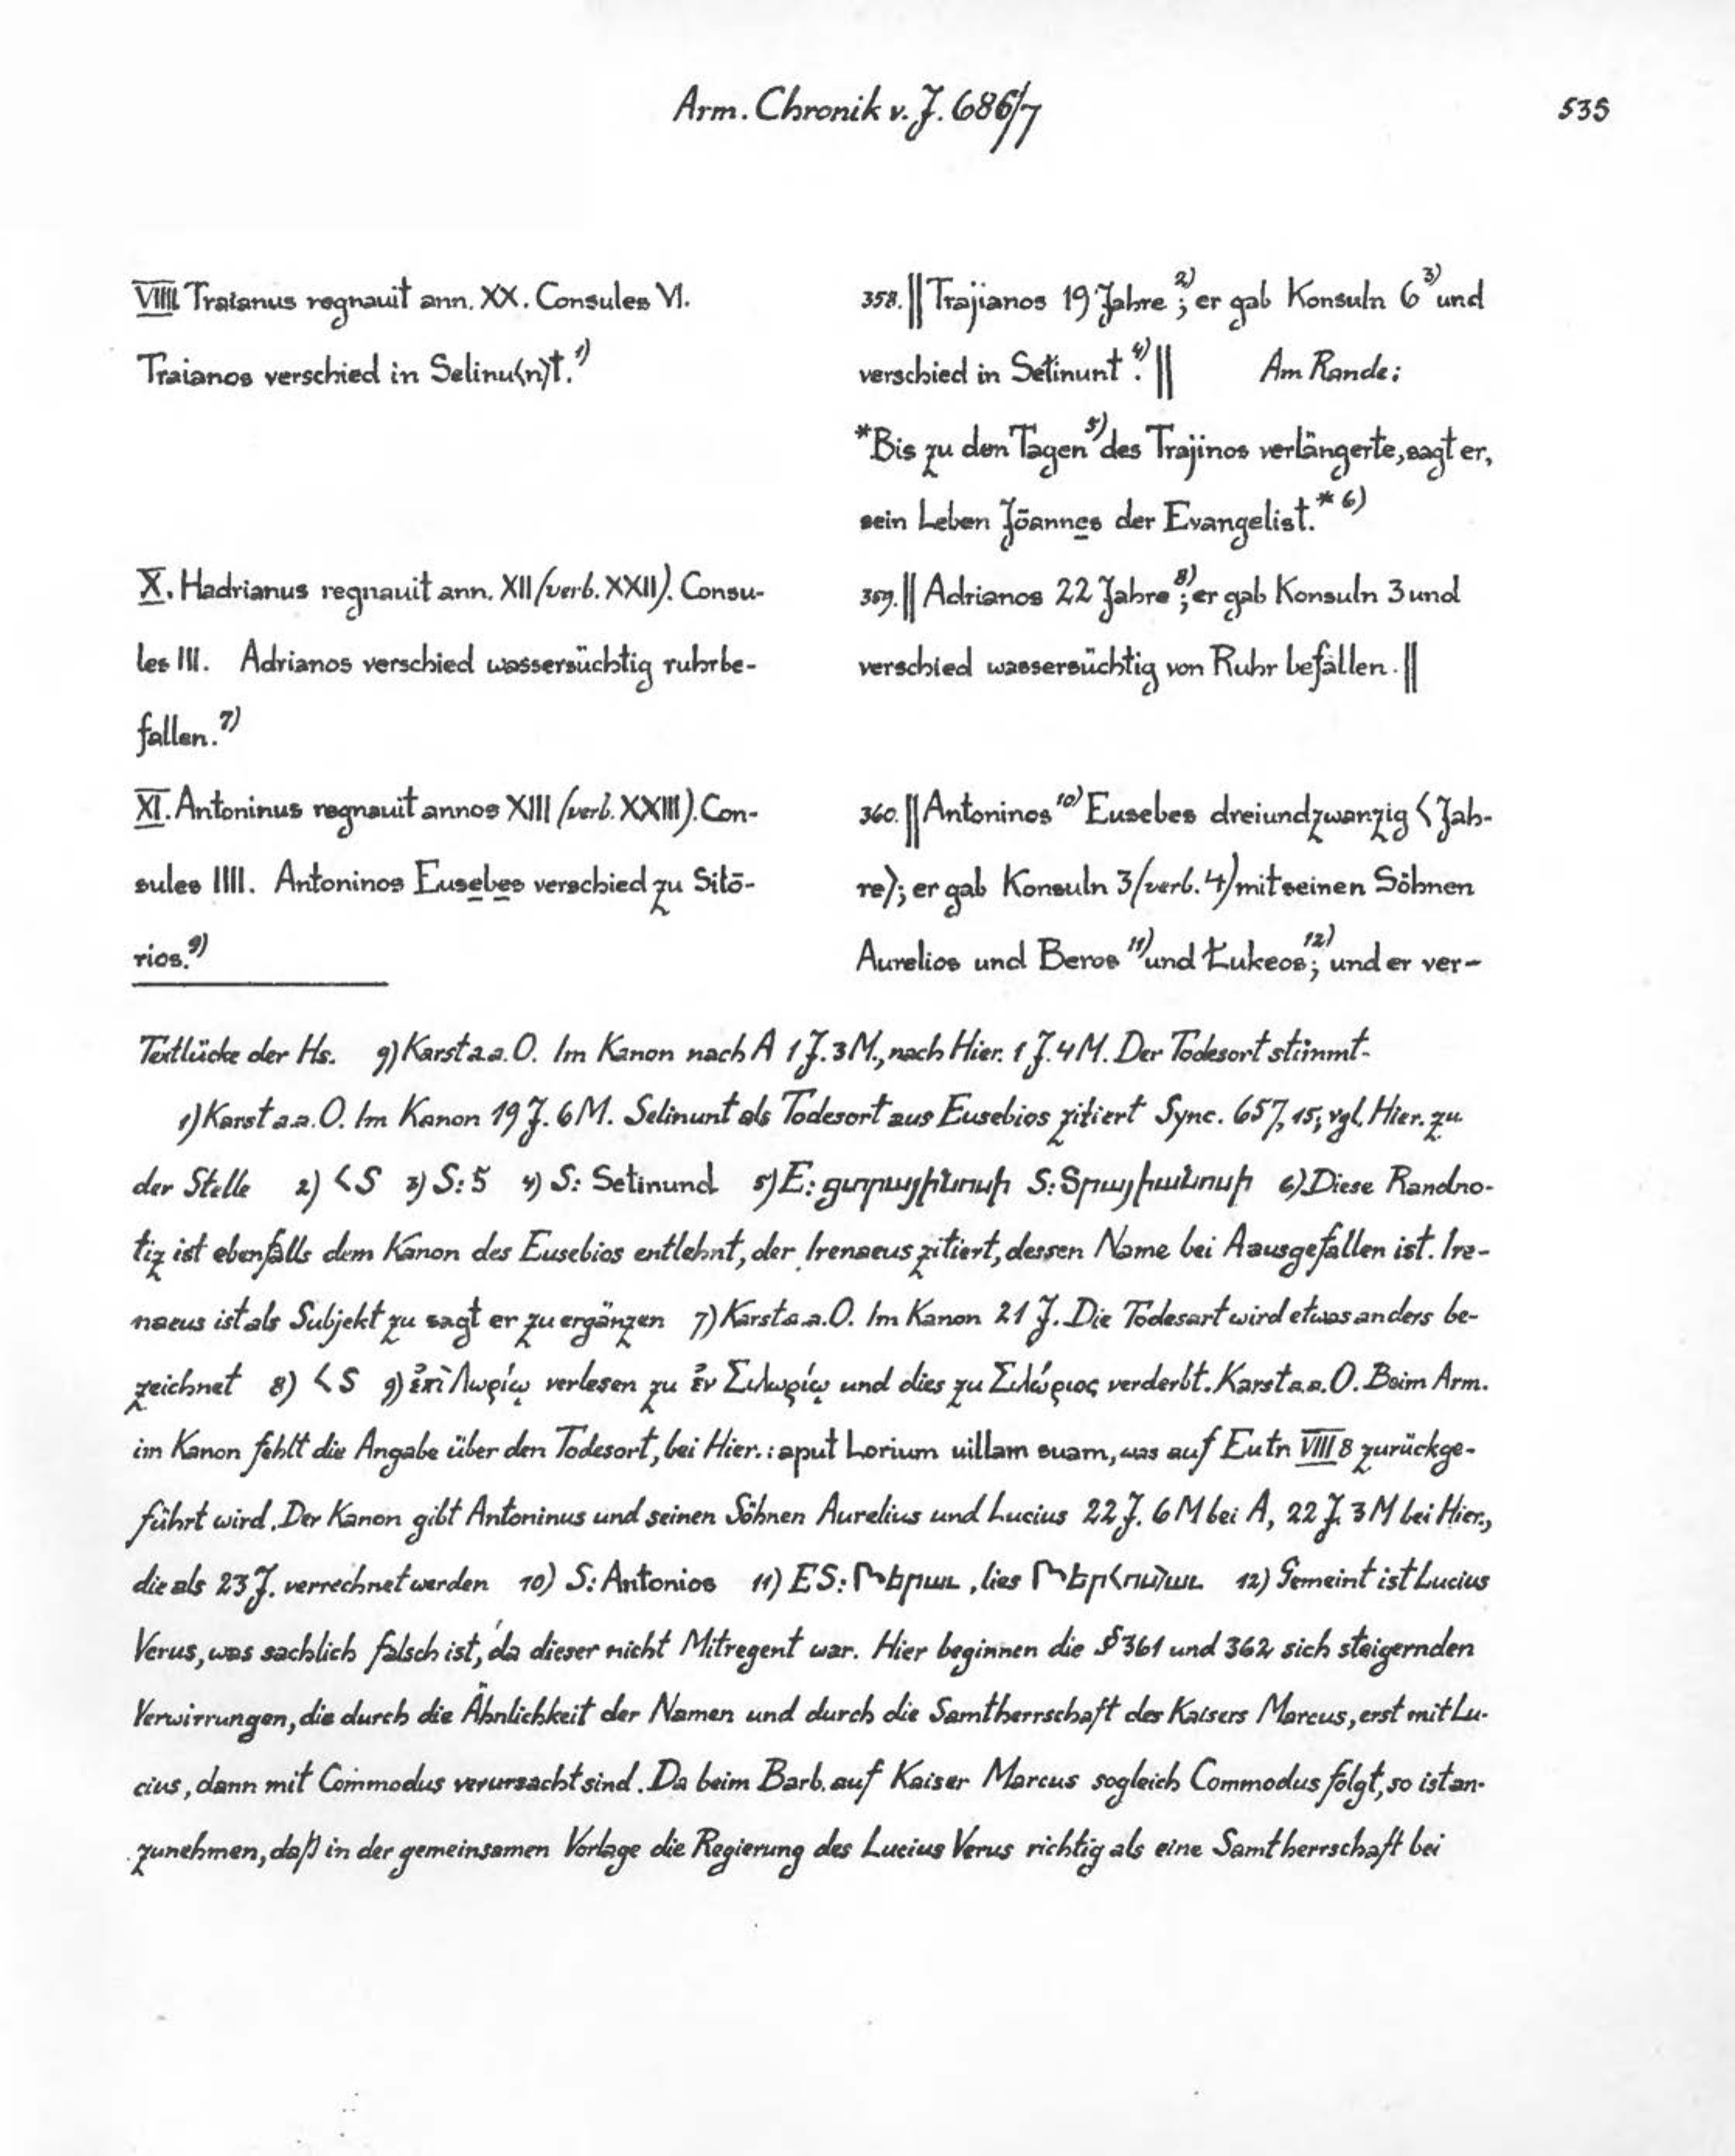 Arm. Chronik v. J. 686/7
535
VIIII. Traianus regnauit ann. XX. Consules VI.
Traianos verschied in Selinu⟨n⟩t.1)
X. Hadrianus regnauit ann. XII (verb. XXII). Consu-
les III. Adrianos verschied wassersüchtig ruhrbe-
fallen.7)
XI. Antoninus regnauit annos XIII (verb. XXIII). Con-
sules IIII. Antoninos Eusebes verschied zu Sitō-
rios.9)
358. ‖ Trajianos 19 Jahre 2); er gab Konsuln 6 3) und
verschied in Setinunt 4). ‖ Am Rande:
*Bis zu den Tagen 5) des Trajinos verlängerte, sagt er,
sein Leben Jōannes der Evangelist.* 6)
359. ‖ Adrianos 22 Jahre 8); er gab Konsuln 3 und
verschied wassersüchtig von Ruhr befallen. ‖
360. ‖ Antoninos 10) Eusebes dreiundzwanzig ⟨Jah-
re⟩; er gab Konsuln 3 (verb. 4) mit seinen Söhnen
Aurelios und Beros 11) und Łukeos 12); und er ver-
Textlücke der Hs. 9) Karst a.a.O. Im Kanon nach A 1 J. 3 M., nach Hier. 1 J. 4 M. Der Todesort stimmt.
1) Karst a.a.O. Im Kanon 19 J. 6 M. Selinunt als Todesort aus Eusebios zitiert Sync. 657, 15; vgl. Hier. zu
der Stelle 2) < S 3) S: 5 4) S: Setinund 5) E: ցտրայինոսի S: Տրայիանոսի 6) Diese Randno-
tiz ist ebenfalls dem Kanon des Eusebios entlehnt, der Irenaeus zitiert, dessen Name bei A ausgefallen ist. Ire-
naeus ist als Subjekt zu sagt er zu ergänzen 7) Karst a.a.O. Im Kanon 21 J. Die Todesart wird etwas anders be-
zeichnet 8) < S 9) ἐπὶ Λωρίῳ verlesen zu ἐν Σιλωρίῳ und dies zu Σιλώριος verderbt. Karst a.a.O. Beim Arm.
im Kanon fehlt die Angabe über den Todesort, bei Hier.: aput Lorium uillam suam, was auf Eutr. VIII 8 zurückge-
führt wird. Der Kanon gibt Antoninus und seinen Söhnen Aurelius und Lucius 22 J. 6 M bei A, 22 J. 3 M bei Hier.,
die als 23 J. verrechnet werden 10) S: Antonios 11) ES: Բերաւ, lies Բեր⟨ոս⟩աւ 12) Gemeint ist Lucius
Verus, was sachlich falsch ist, da dieser nicht Mitregent war. Hier beginnen die § 361 und 362 sich steigernden
Verwirrungen, die durch die Ähnlichkeit der Namen und durch die Samtherrschaft des Kaisers Marcus, erst mit Lu-
cius, dann mit Commodus verursacht sind. Da beim Barb. auf Kaiser Marcus sogleich Commodus folgt, so ist an-
zunehmen, daß in der gemeinsamen Vorlage die Regierung des Lucius Verus richtig als eine Samtherrschaft bei